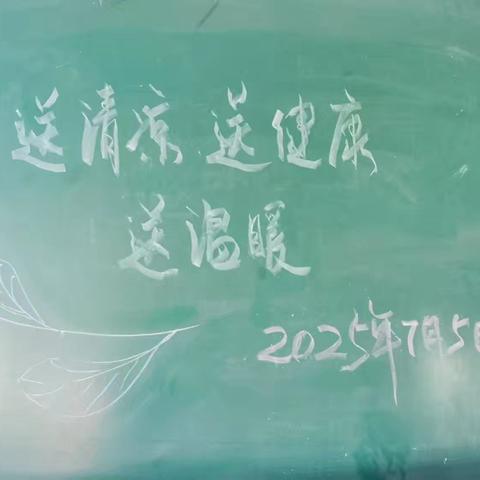 送清凉 送健康
送温暖
2025年7月5日